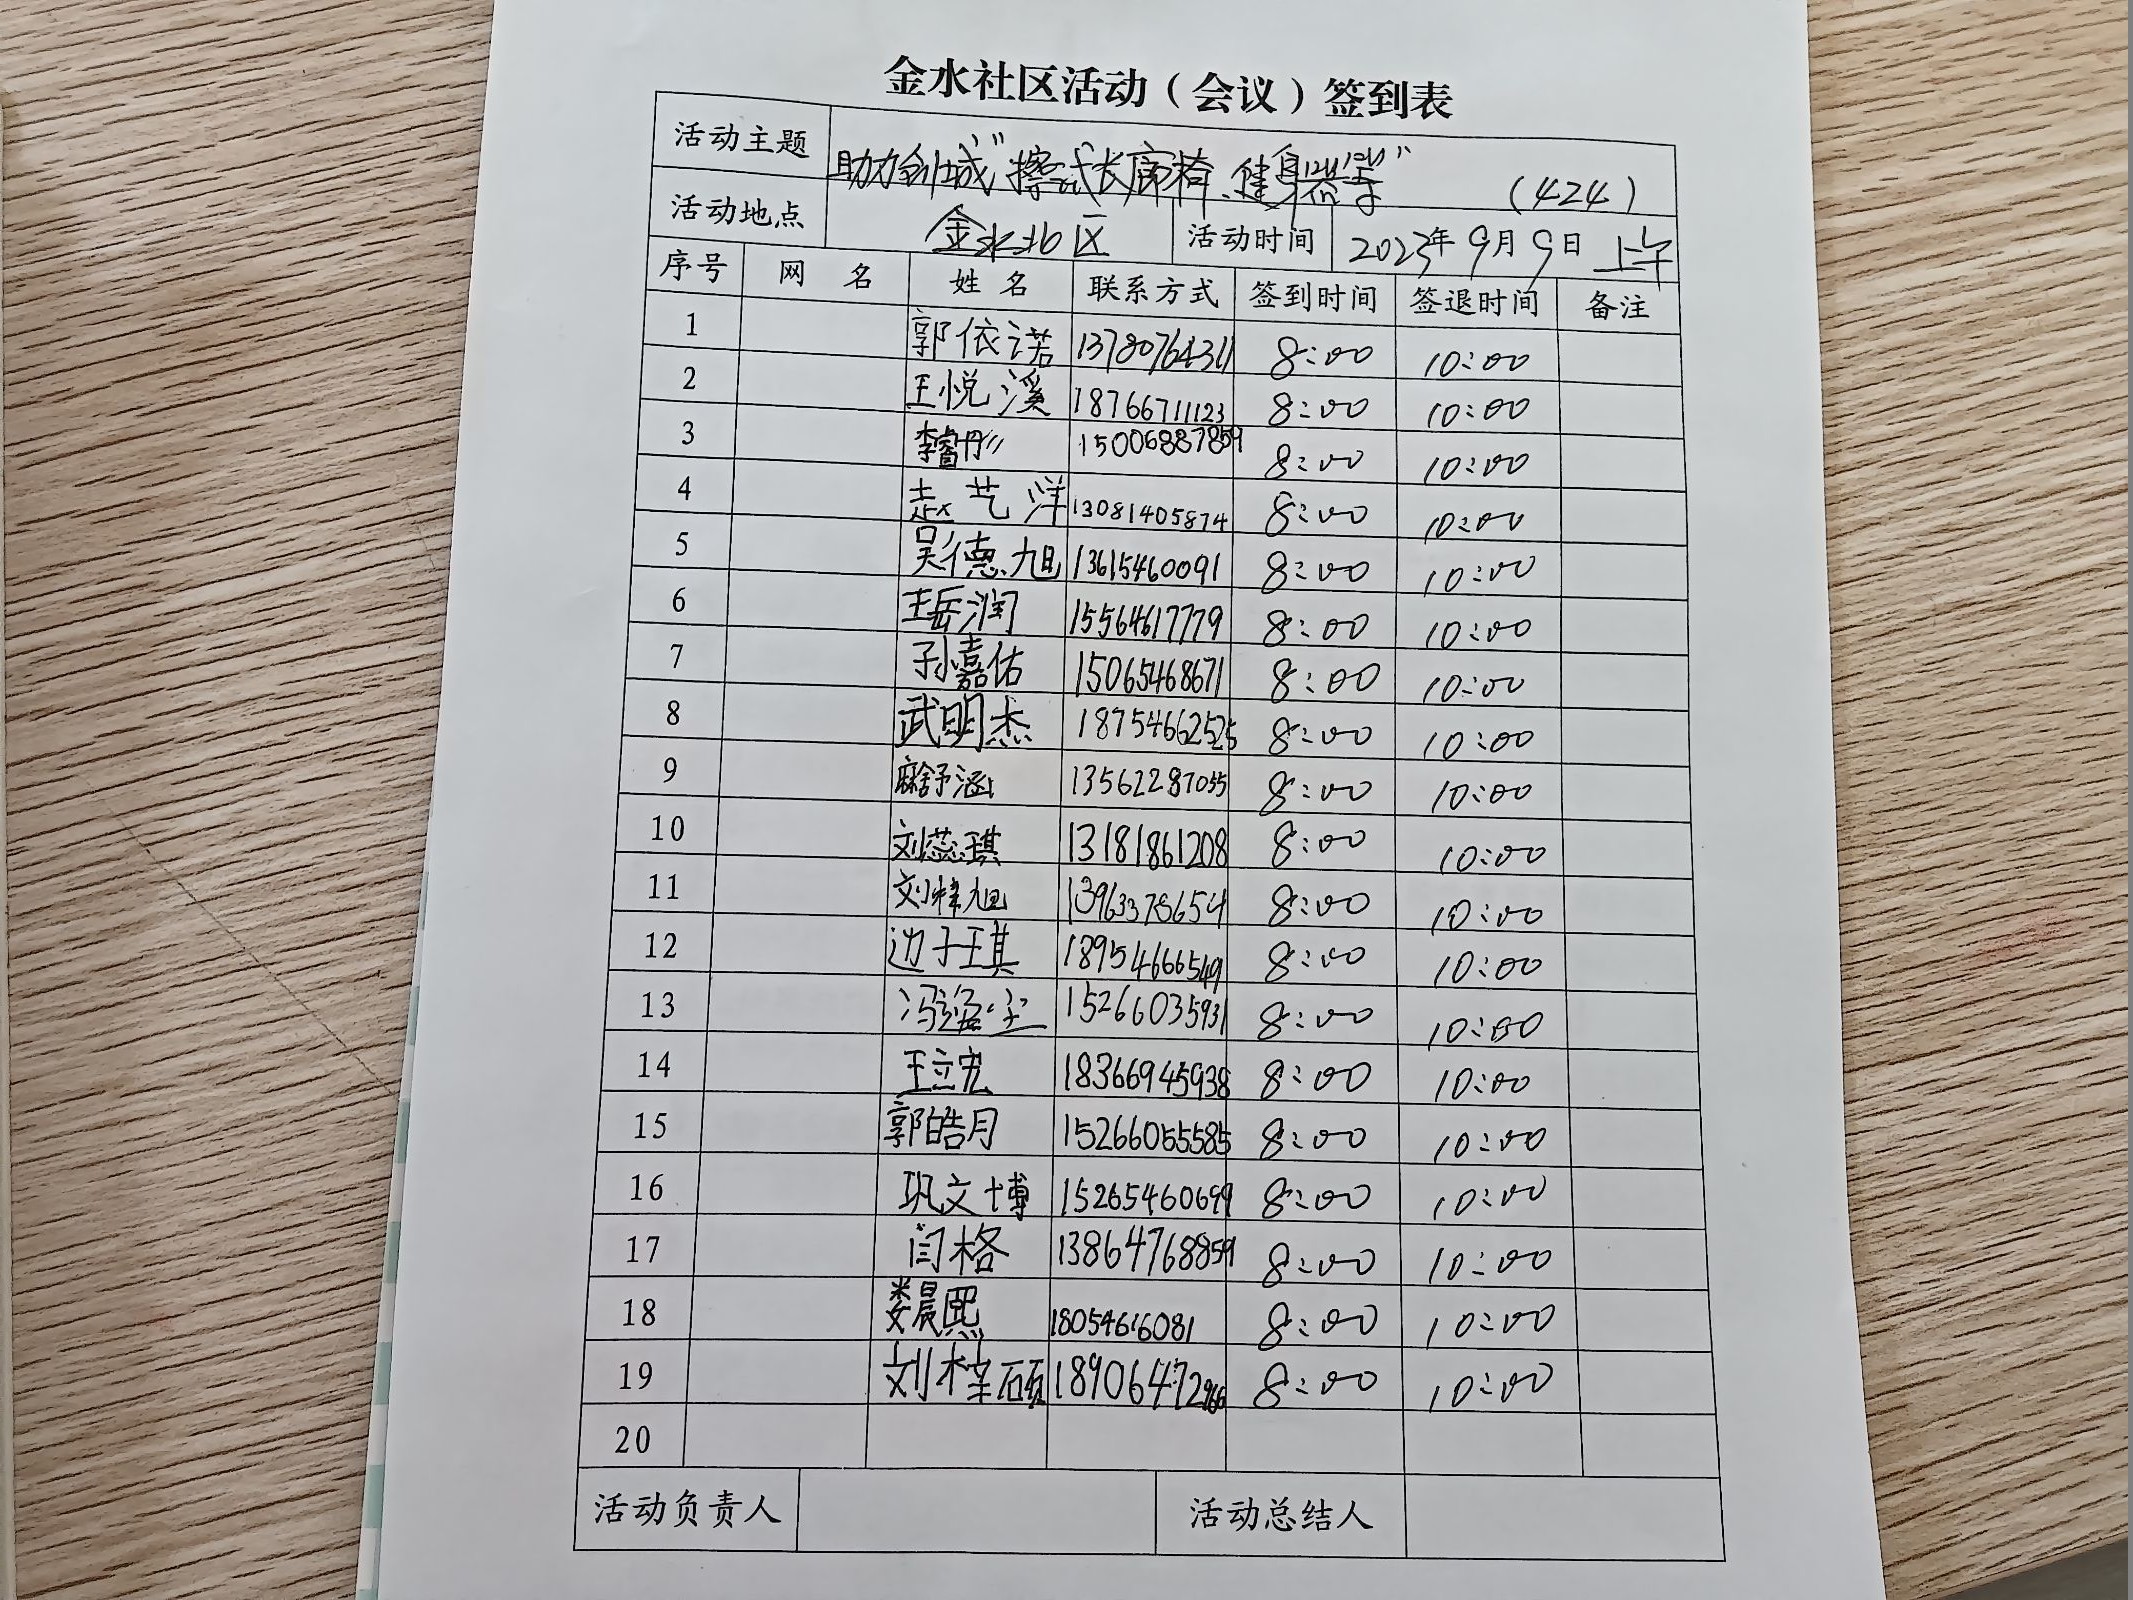 金水社区活动（会议）签到表
活动主题 助力创城"擦拭长廊椅、健身器等" （424）
活动地点 金水北区 活动时间 2023年9月9日 上午
序号 网 名 姓 名 联系方式 签到时间 签退时间 备注
1 郭依诺 13780764311 8:00 10:00
2 王悦溪 18766711123 8:00 10:00
3 李睿彤 15006887859 8:00 10:00
4 赵艺洋 13081405874 8:00 10:00
5 吴德旭 13615460091 8:00 10:00
6 王岳润 15564617779 8:00 10:00
7 孙嘉佑 15065468671 8:00 10:00
8 武明杰 18754662525 8:00 10:00
9 麻舒涵 13562287055 8:00 10:00
10 刘蕊琪 13181861208 8:00 10:00
11 刘梓旭 13963378654 8:00 10:00
12 边子琪 18954666549 8:00 10:00
13 15266035931 8:00 10:00
14 王立宏 18366945938 8:00 10:00
15 郭皓月 15266055585 8:00 10:00
16 巩文博 15265460699 8:00 10:00
17 闫格 13864768859 8:00 10:00
18 娄晨熙 18054616081 8:00 10:00
19 刘梓硕 18906472966 8:00 10:00
20
活动负责人 活动总结人